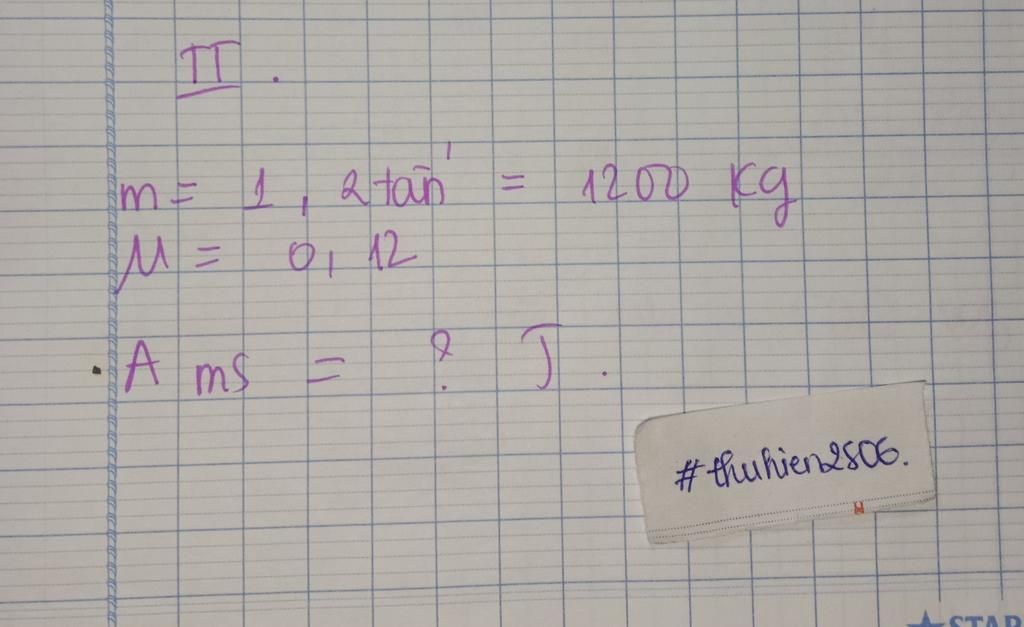 II.
m = 1,2 tấn = 1200 kg
μ = 0,12
A ms = ? J.
#thuhien2806.
STAR